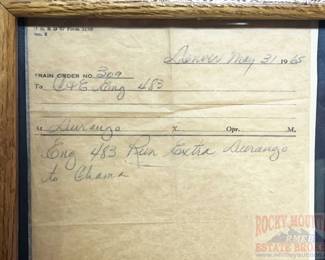 Denver May 31 1965
TRAIN ORDER NO. 309
To C&E Eng 483
At Durango X. Opr. M.
Eng 483 Run Extra Durango
to Chama
ROCKY MOUNTAIN
ESTATE BROKERS